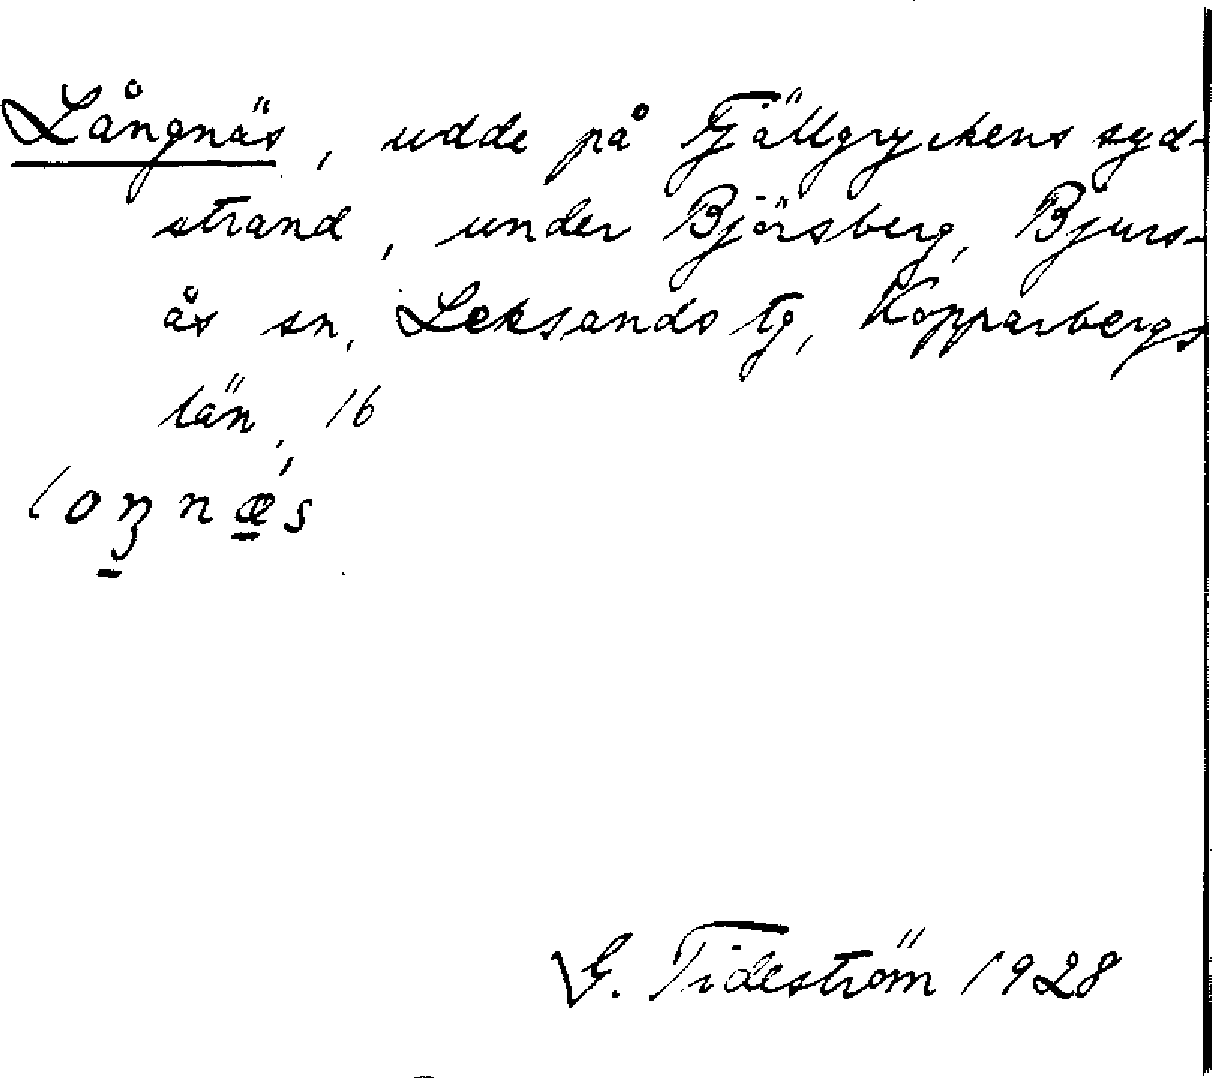 Långnäs, udde på Fjällgryckens syd-
strand, under Björsberg, Bjurs-
ås sn, Leksands tg, Kopparbergs
län, 16
G. Tideström 1928